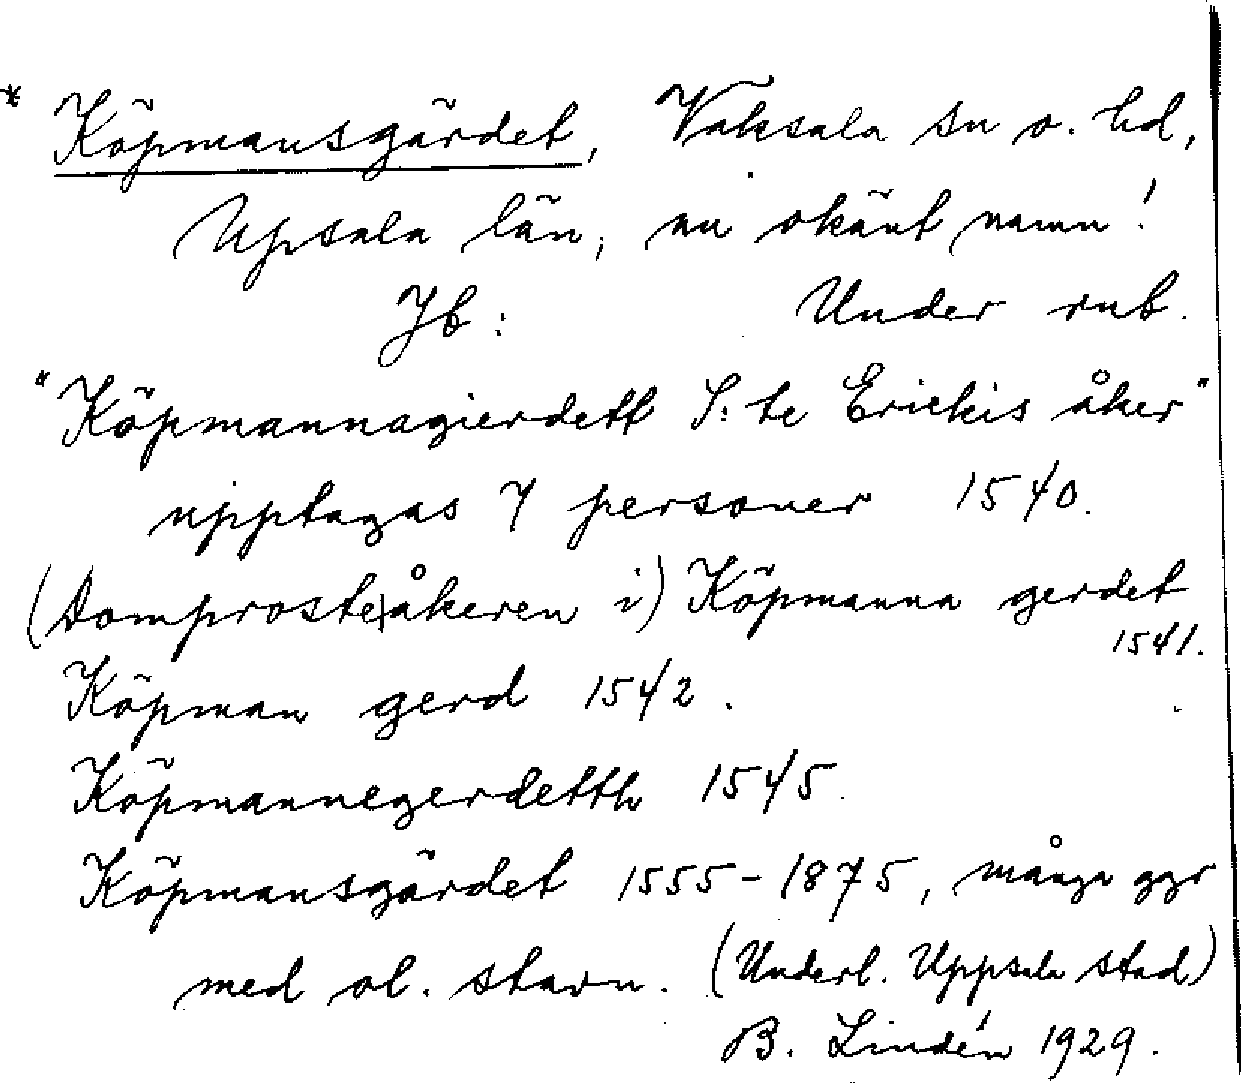 * Köpmansgärdet, Vaksala sn o. hd,
Upsala län, nu okänt namn!
Jb: Under rub.
"Köpmannagierdett S:te Erickis åker"
upptagas 7 personer 1540.
(Domproste|åkeren i) Köpmanna gerdet
1541.
Köpman gerd 1542.
Köpmannegerdetth 1545.
Köpmansgärdet 1555-1875, många ggr
med ol. stavn. (Underl. Uppsala stad)
B. Lindén 1929.